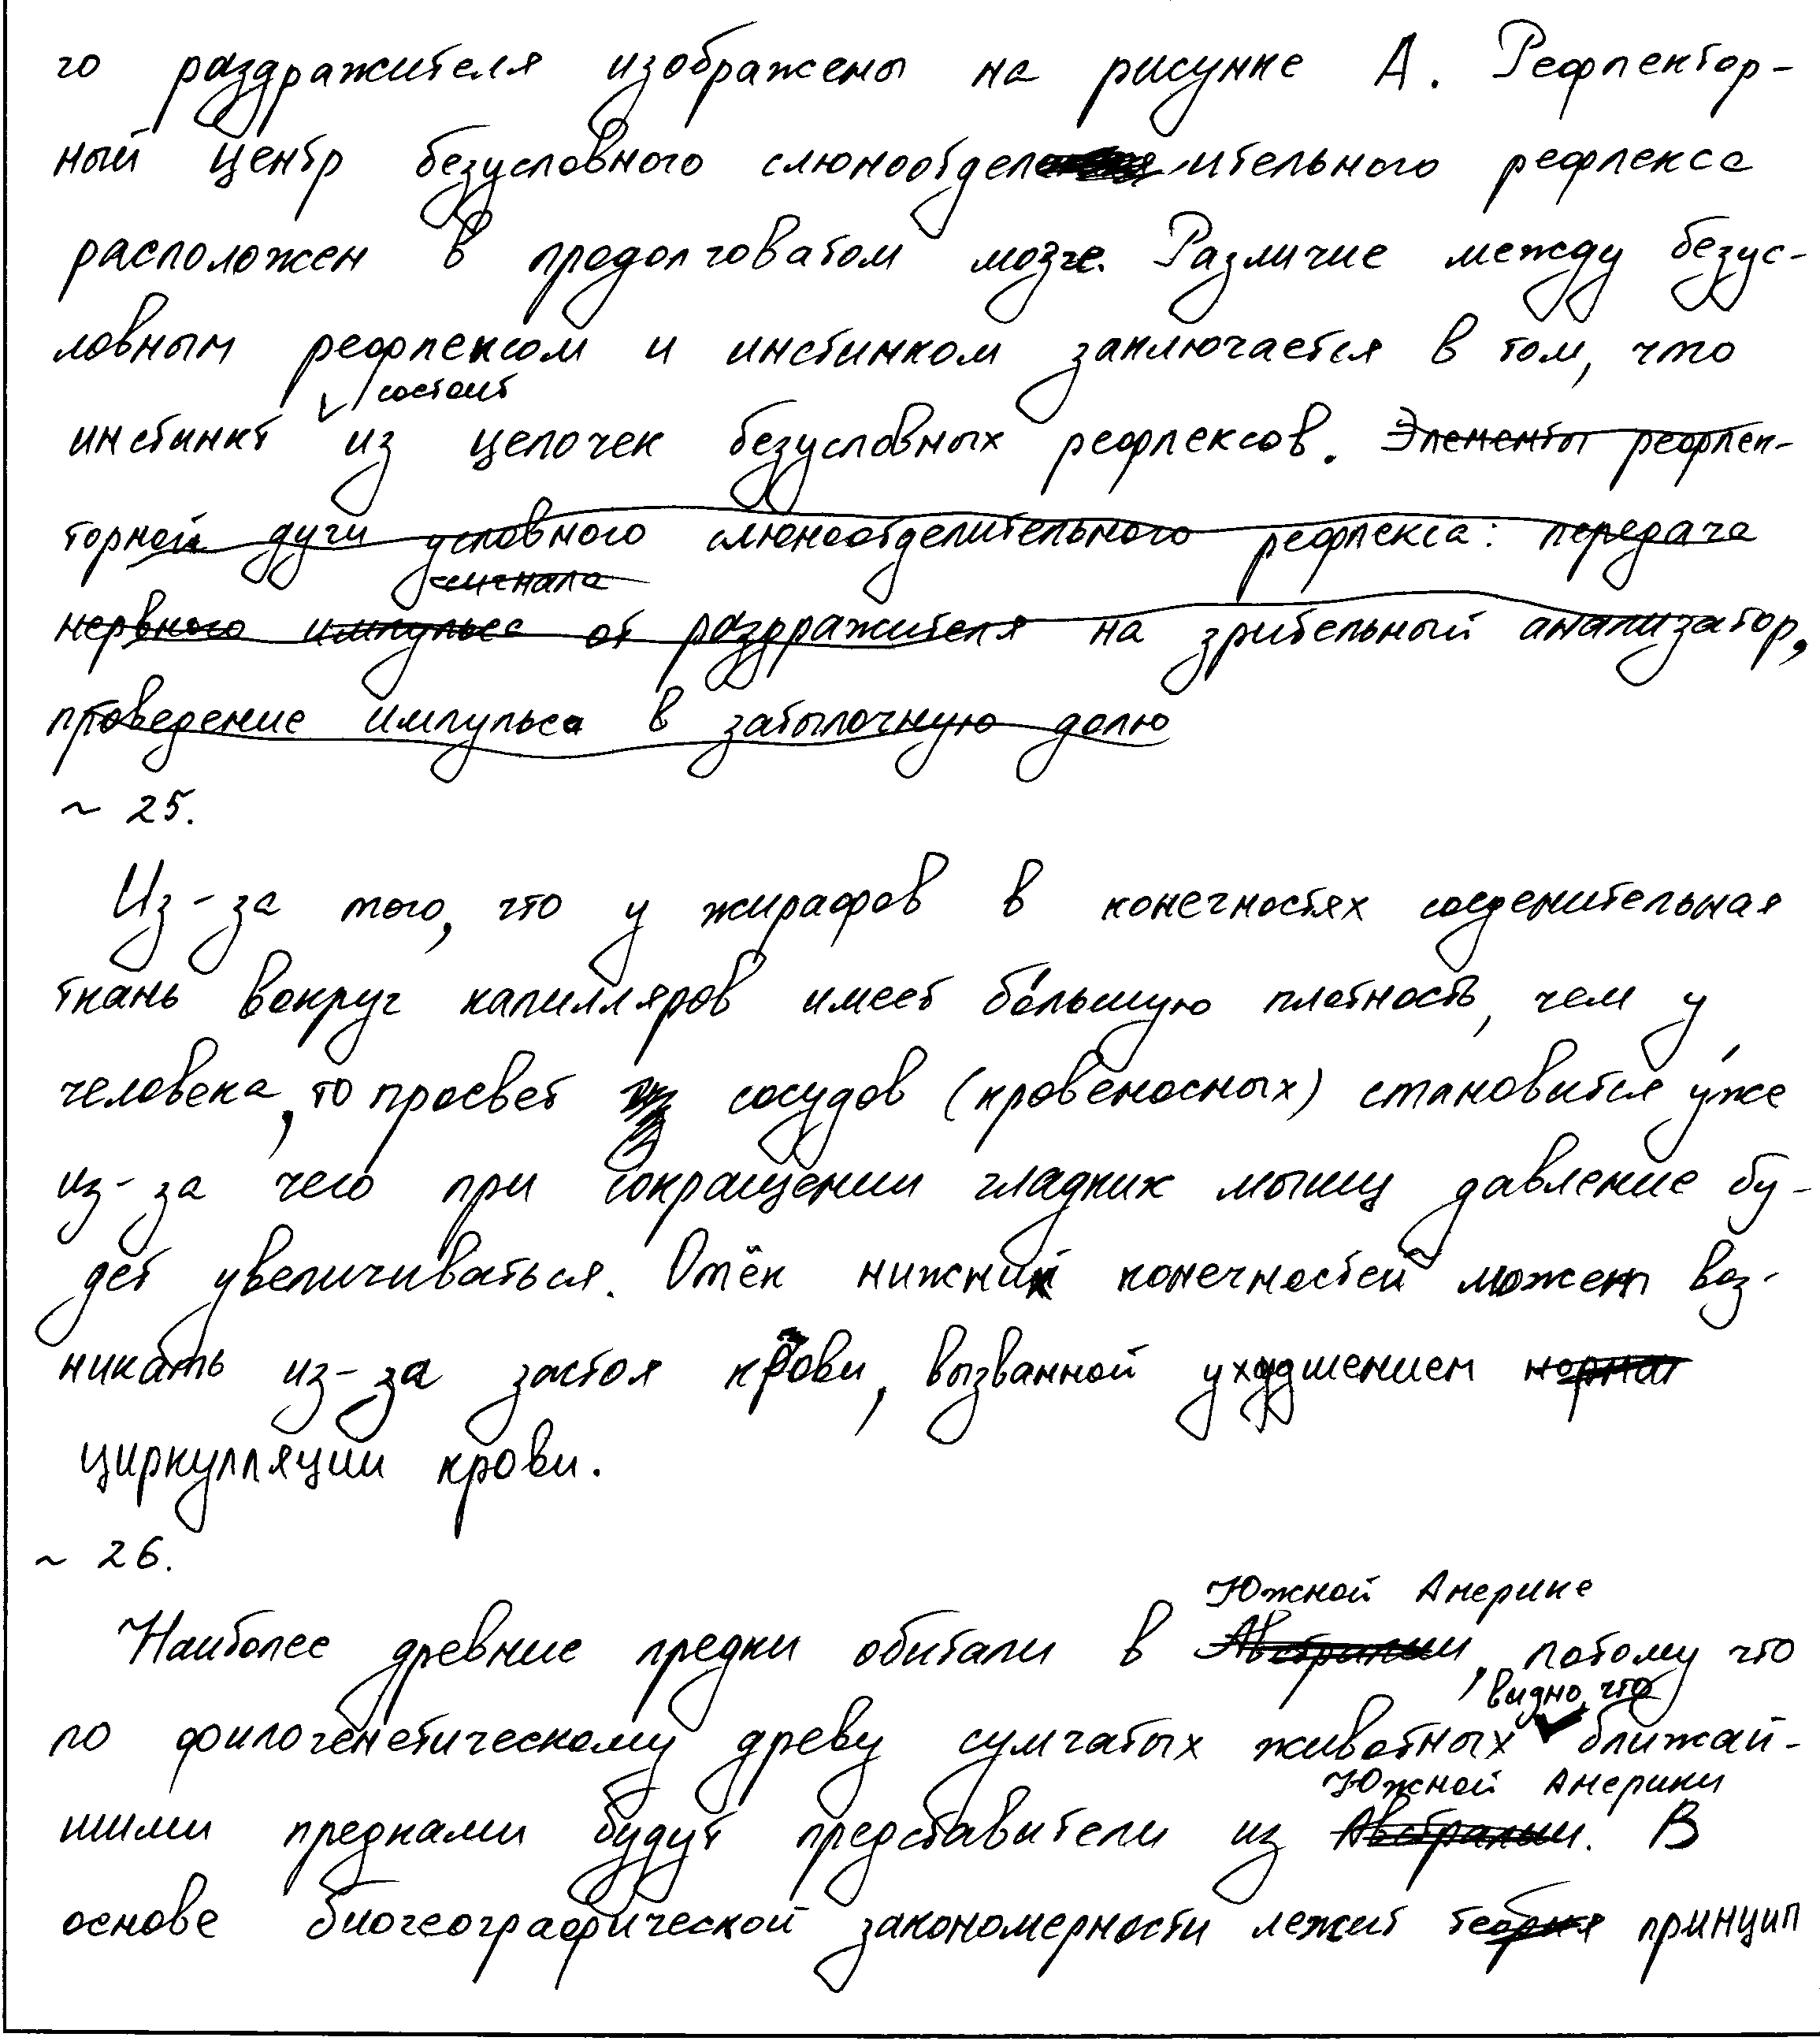 го раздражителя изображены на рисунке А. Рефлектор-
ный центр безусловного слюноотделительного рефлекса
расположен в продолговатом мозге. Различие между безус-
ловным рефлексом и инстинком заключается в том, что
состоит
инстинкт из цепочек безусловных рефлексов. Элементы рефлек-
торной дуги условного слюноотделительного рефлекса: передача
сигнала
нервного импульса от раздражителя на зрительный анализатор,
проведение импульса в затылочную долю
~ 25.
Из-за того, что у жирафов в конечностях соеденительная
ткань вокруг капилляров имеет бо́льшую плотность, чем у
человека, то просвет сосудов (кровеносных) становится у́же
из-за чего при сокращении гладких мышц давление бу-
дет увеличиваться. Отёк нижних конечностей может воз-
никать из-за застоя крови, вызванной ухудшением
циркулляции крови.
~ 26.
Южной Америке
Наиболее древние предки обитали в Австралии, потому что
видно, что
по филогенетическому древу сумчатых животных ближай-
Южной Америки
шими предками будут представители из Австралии. В
основе биогеографической закономерности лежит теория принцип